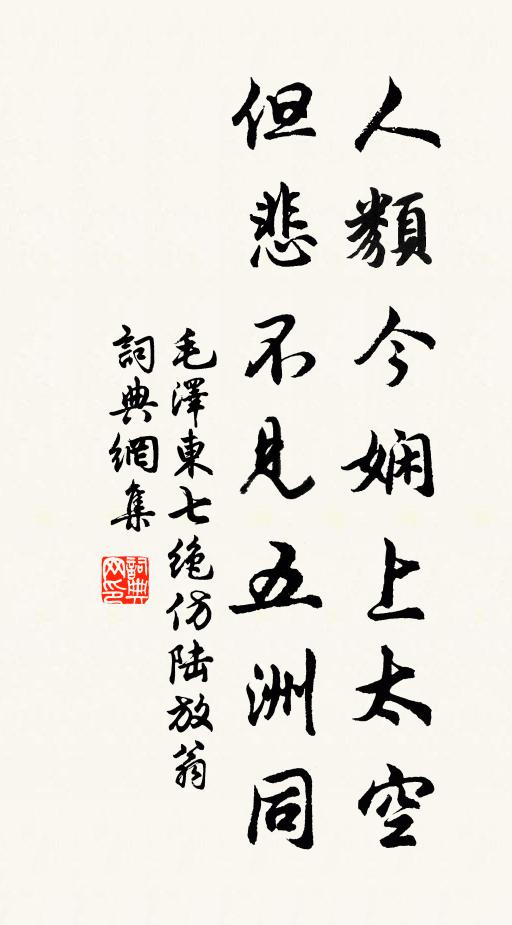 人類今娴上太空
但悲不見五洲同
毛澤東七绝仿陆放翁
詞典網集
詞典网印